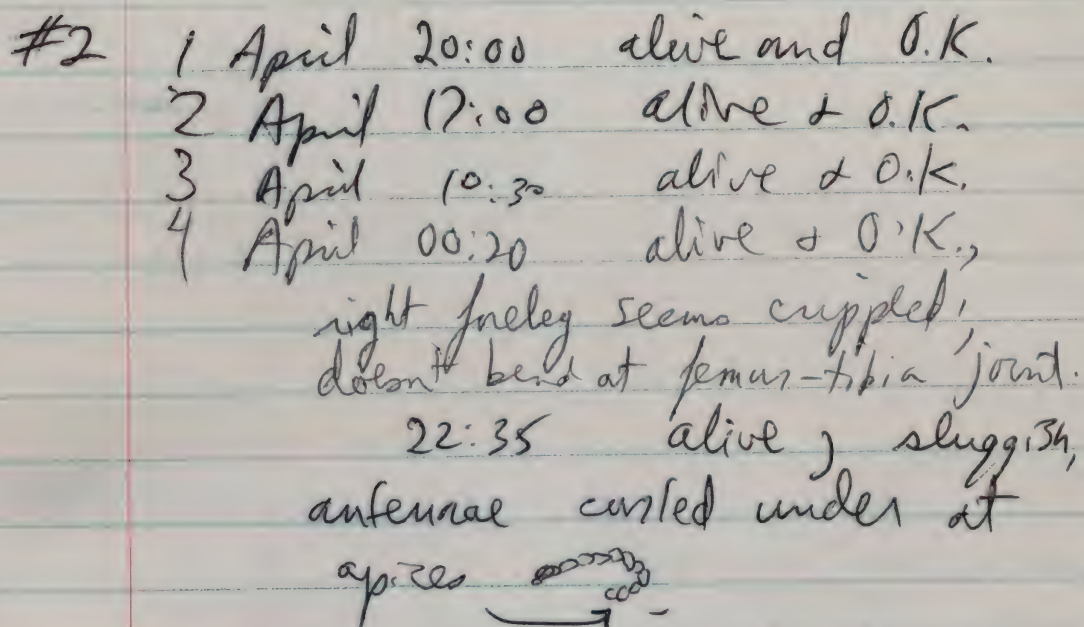 #2 1 April 20:00 alive and O.K.
2 April 17:00 alive & O.K.
3 April 10:30 alive & O.K.
4 April 00:20 alive & O.K.,
right foreleg seems crippled,
doesn't bend at femur-tibia joint.
22:35 alive, sluggish,
antennae curled under at
apices